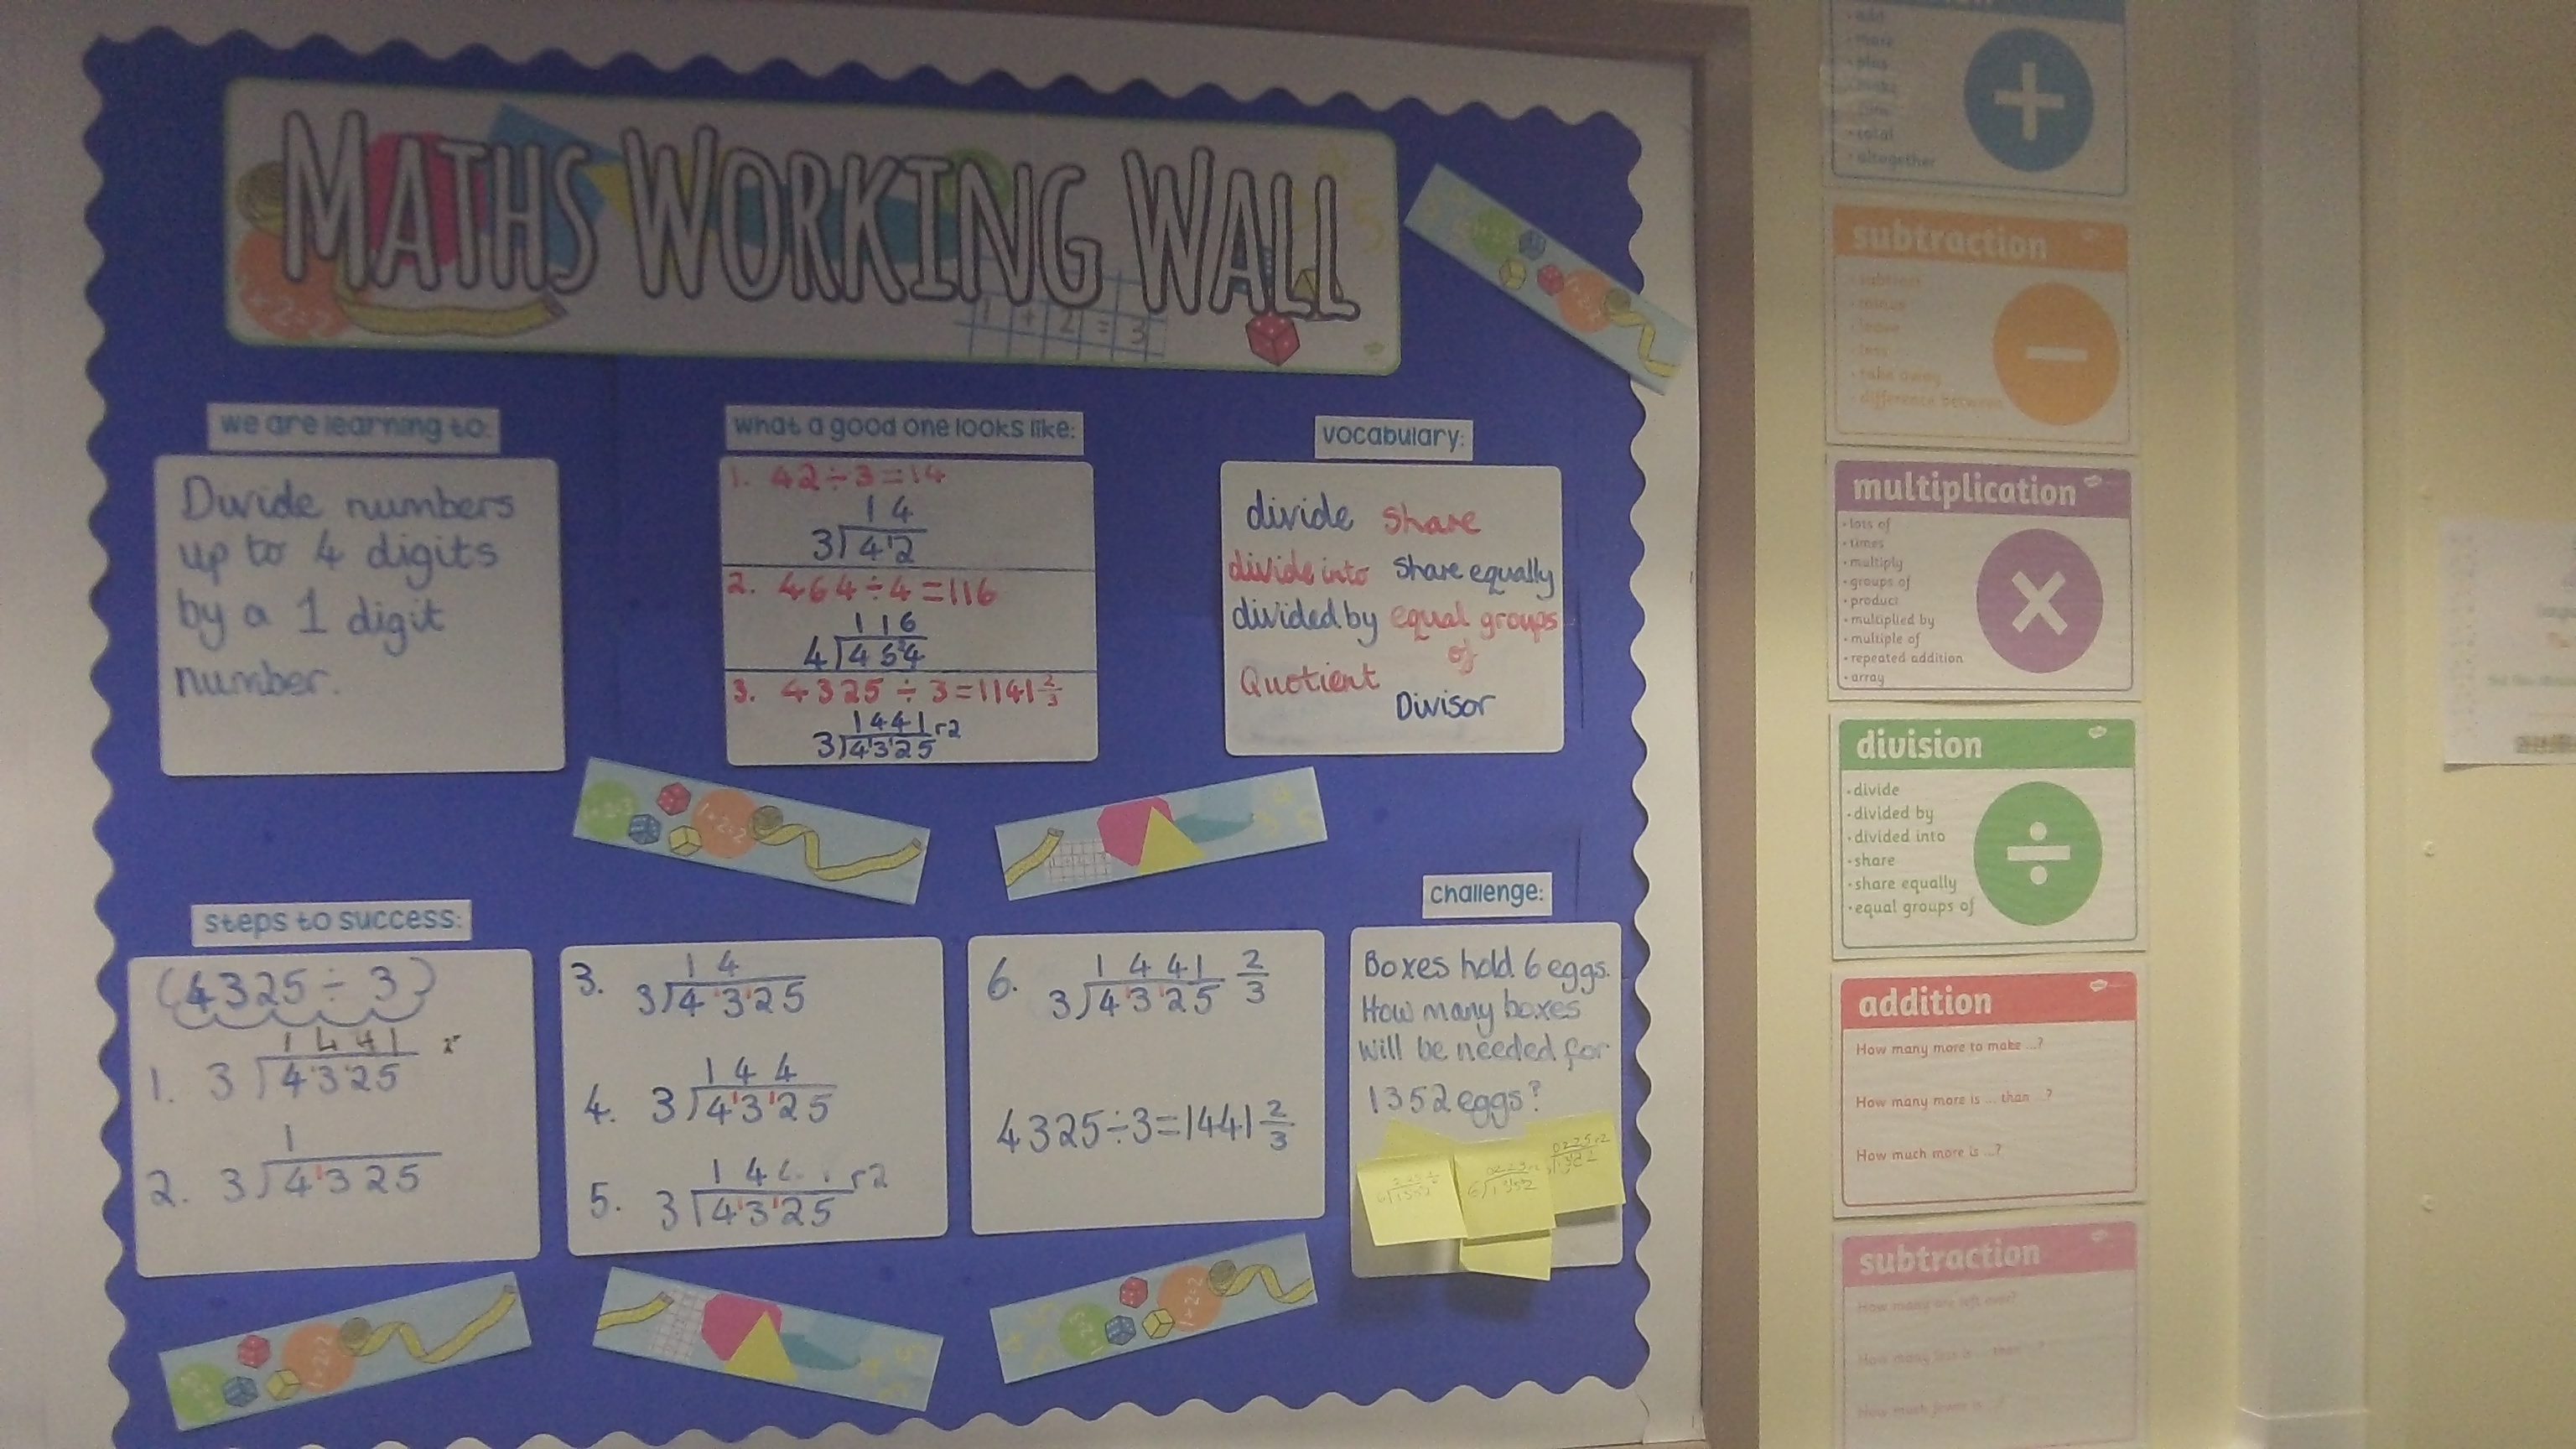 MATHS WORKING WALL
1 + 2 = 3
we are learning to:
Divide numbers
up to 4 digits
by a 1 digit
number.
what a good one looks like:
1. 42÷3=14
14
3)4¹2
2. 464÷4=116
116
4)46²4
3. 4325÷3=1141 2/3
1441 r2
3)4¹3¹25
vocabulary:
divide share
divide into share equally
divided by equal groups
of
Quotient
Divisor
steps to success:
(4325÷3)
1441
1. 3)4¹3¹25
1
2. 3)4¹325
14
3. 3)4¹3¹25
144
4. 3)4¹3¹25
14 r2
5. 3)4¹3¹25
1441 2/3
6. 3)4¹3¹25
4325÷3=1441 2/3
challenge:
Boxes hold 6 eggs.
How many boxes
will be needed for
1352 eggs?
+
add
more
plus
total
altogether
subtraction
subtract
minus
leave
less
take away
difference between
−
multiplication
lots of
times
multiply
groups of
product
multiplied by
multiple of
repeated addition
array
×
division
divide
divided by
divided into
share
share equally
equal groups of
÷
addition
How many more to make ...?
How many more is ... than ...?
How much more is ...?
subtraction
How many are left over?
How many less is ... than ...?
How much fewer is ...?